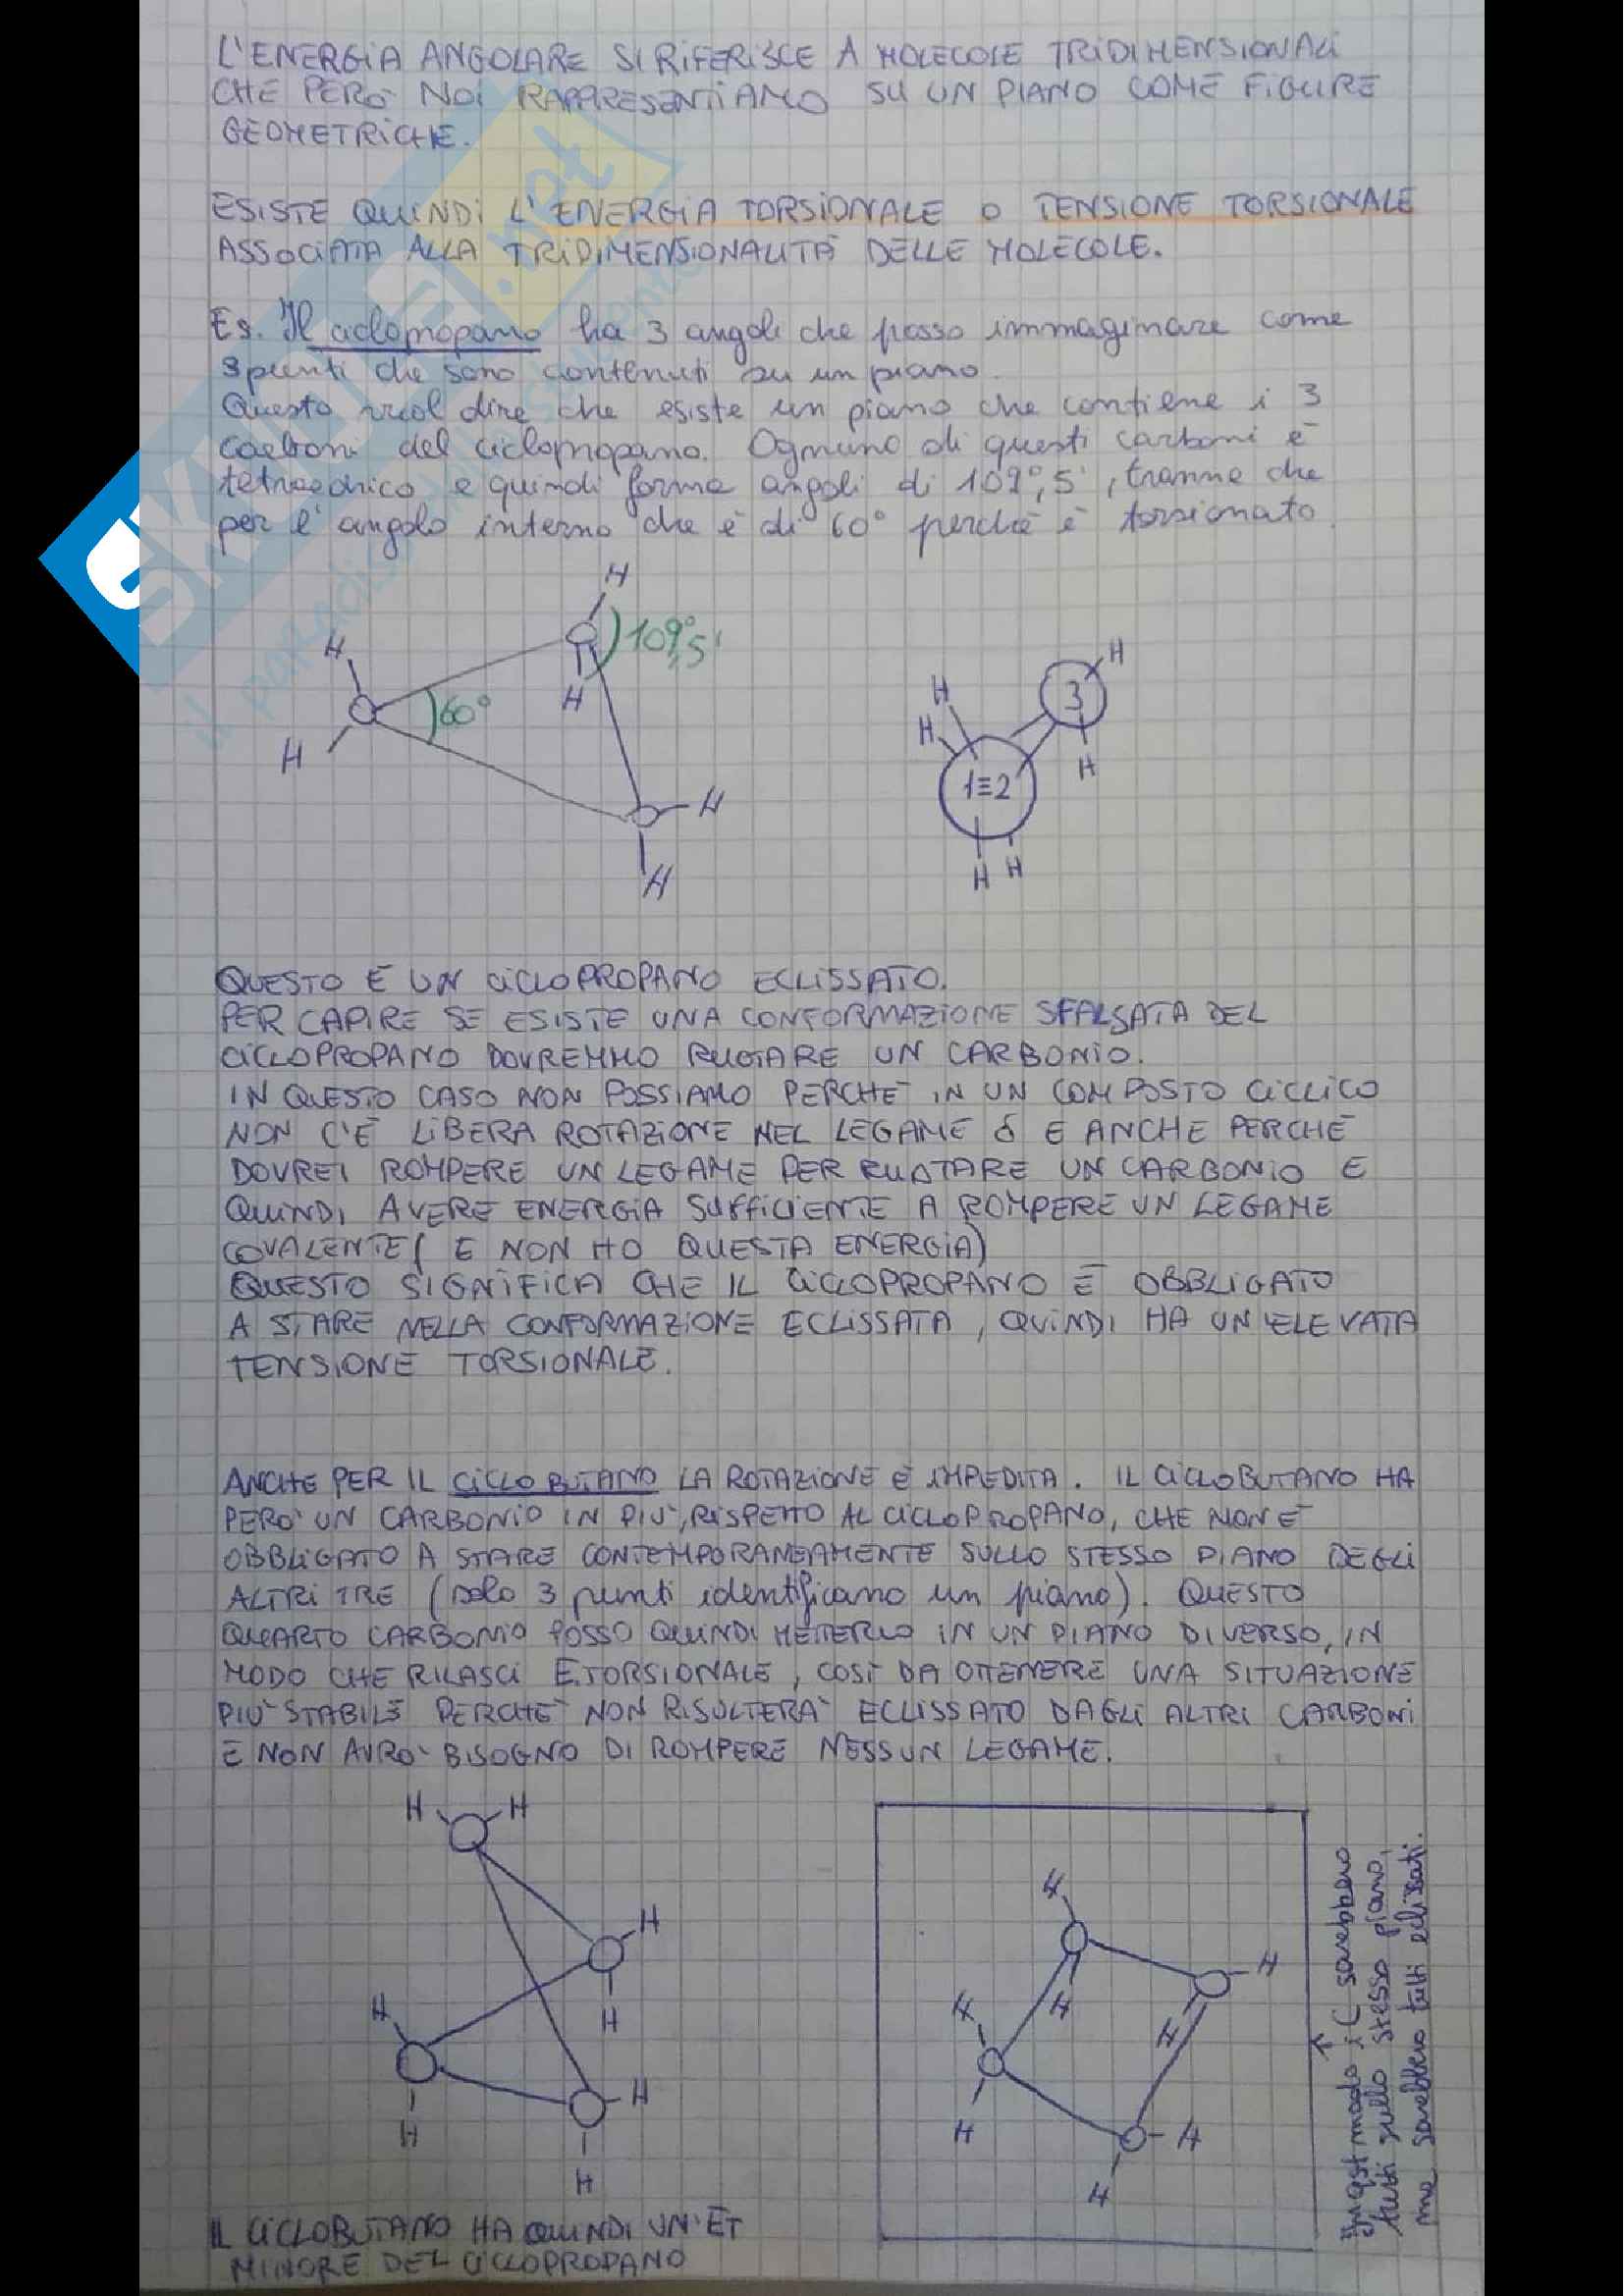 L'ENERGIA ANGOLARE SI RIFERISCE A MOLECOLE TRIDIMENSIONALI
CHE PERÒ NOI RAPPRESENTIAMO SU UN PIANO COME FIGURE
GEOMETRICHE.
ESISTE QUINDI L'ENERGIA TORSIONALE O TENSIONE TORSIONALE
ASSOCIATA ALLA TRIDIMENSIONALITÀ DELLE MOLECOLE.
Es. Il ciclopropano ha 3 angoli che posso immaginare come
3 punti che sono contenuti su un piano.
Questo vuol dire che esiste un piano che contiene i 3
carboni del ciclopropano. Ognuno di questi carboni è
tetraedrico e quindi forma angoli di 109°,5', tranne che
per l'angolo interno che è di 60° perchè è torsionato.
H
H
109°,5'
H
60°
H
H
H
H
3
H
H
H
1≡2
H
H
QUESTO È UN CICLOPROPANO ECLISSATO.
PER CAPIRE SE ESISTE UNA CONFORMAZIONE SFALSATA DEL
CICLOPROPANO DOVREMMO RUOTARE UN CARBONIO.
IN QUESTO CASO NON POSSIAMO PERCHÈ IN UN COMPOSTO CICLICO
NON C'È LIBERA ROTAZIONE NEL LEGAME δ E ANCHE PERCHÈ
DOVREI ROMPERE UN LEGAME PER RUOTARE UN CARBONIO E
QUINDI AVERE ENERGIA SUFFICIENTE A ROMPERE UN LEGAME
COVALENTE (E NON HO QUESTA ENERGIA)
QUESTO SIGNIFICA CHE IL CICLOPROPANO È OBBLIGATO
A STARE NELLA CONFORMAZIONE ECLISSATA, QUINDI HA UN'ELEVATA
TENSIONE TORSIONALE.
ANCHE PER IL CICLOBUTANO LA ROTAZIONE È IMPEDITA. IL CICLOBUTANO HA
PERÒ UN CARBONIO IN PIÙ, RISPETTO AL CICLOPROPANO, CHE NON È
OBBLIGATO A STARE CONTEMPORANEAMENTE SULLO STESSO PIANO DEGLI
ALTRI TRE (solo 3 punti identificano un piano). QUESTO
QUARTO CARBONIO POSSO QUINDI METTERLO IN UN PIANO DIVERSO, IN
MODO CHE RILASCI E.TORSIONALE, COSÌ DA OTTENERE UNA SITUAZIONE
PIÙ STABILE PERCHÈ NON RISULTERÀ ECLISSATO DAGLI ALTRI CARBONI
E NON AVRÒ BISOGNO DI ROMPERE NESSUN LEGAME.
H H
H
H
H
H
H
H
H
H
H
H
H
H
H
H
In qst modo i C sarebbero
tutti sullo stesso piano,
ma sarebbero tutti eclissati.
IL CICLOBUTANO HA QUINDI UN'ET
MINORE DEL CICLOPROPANO